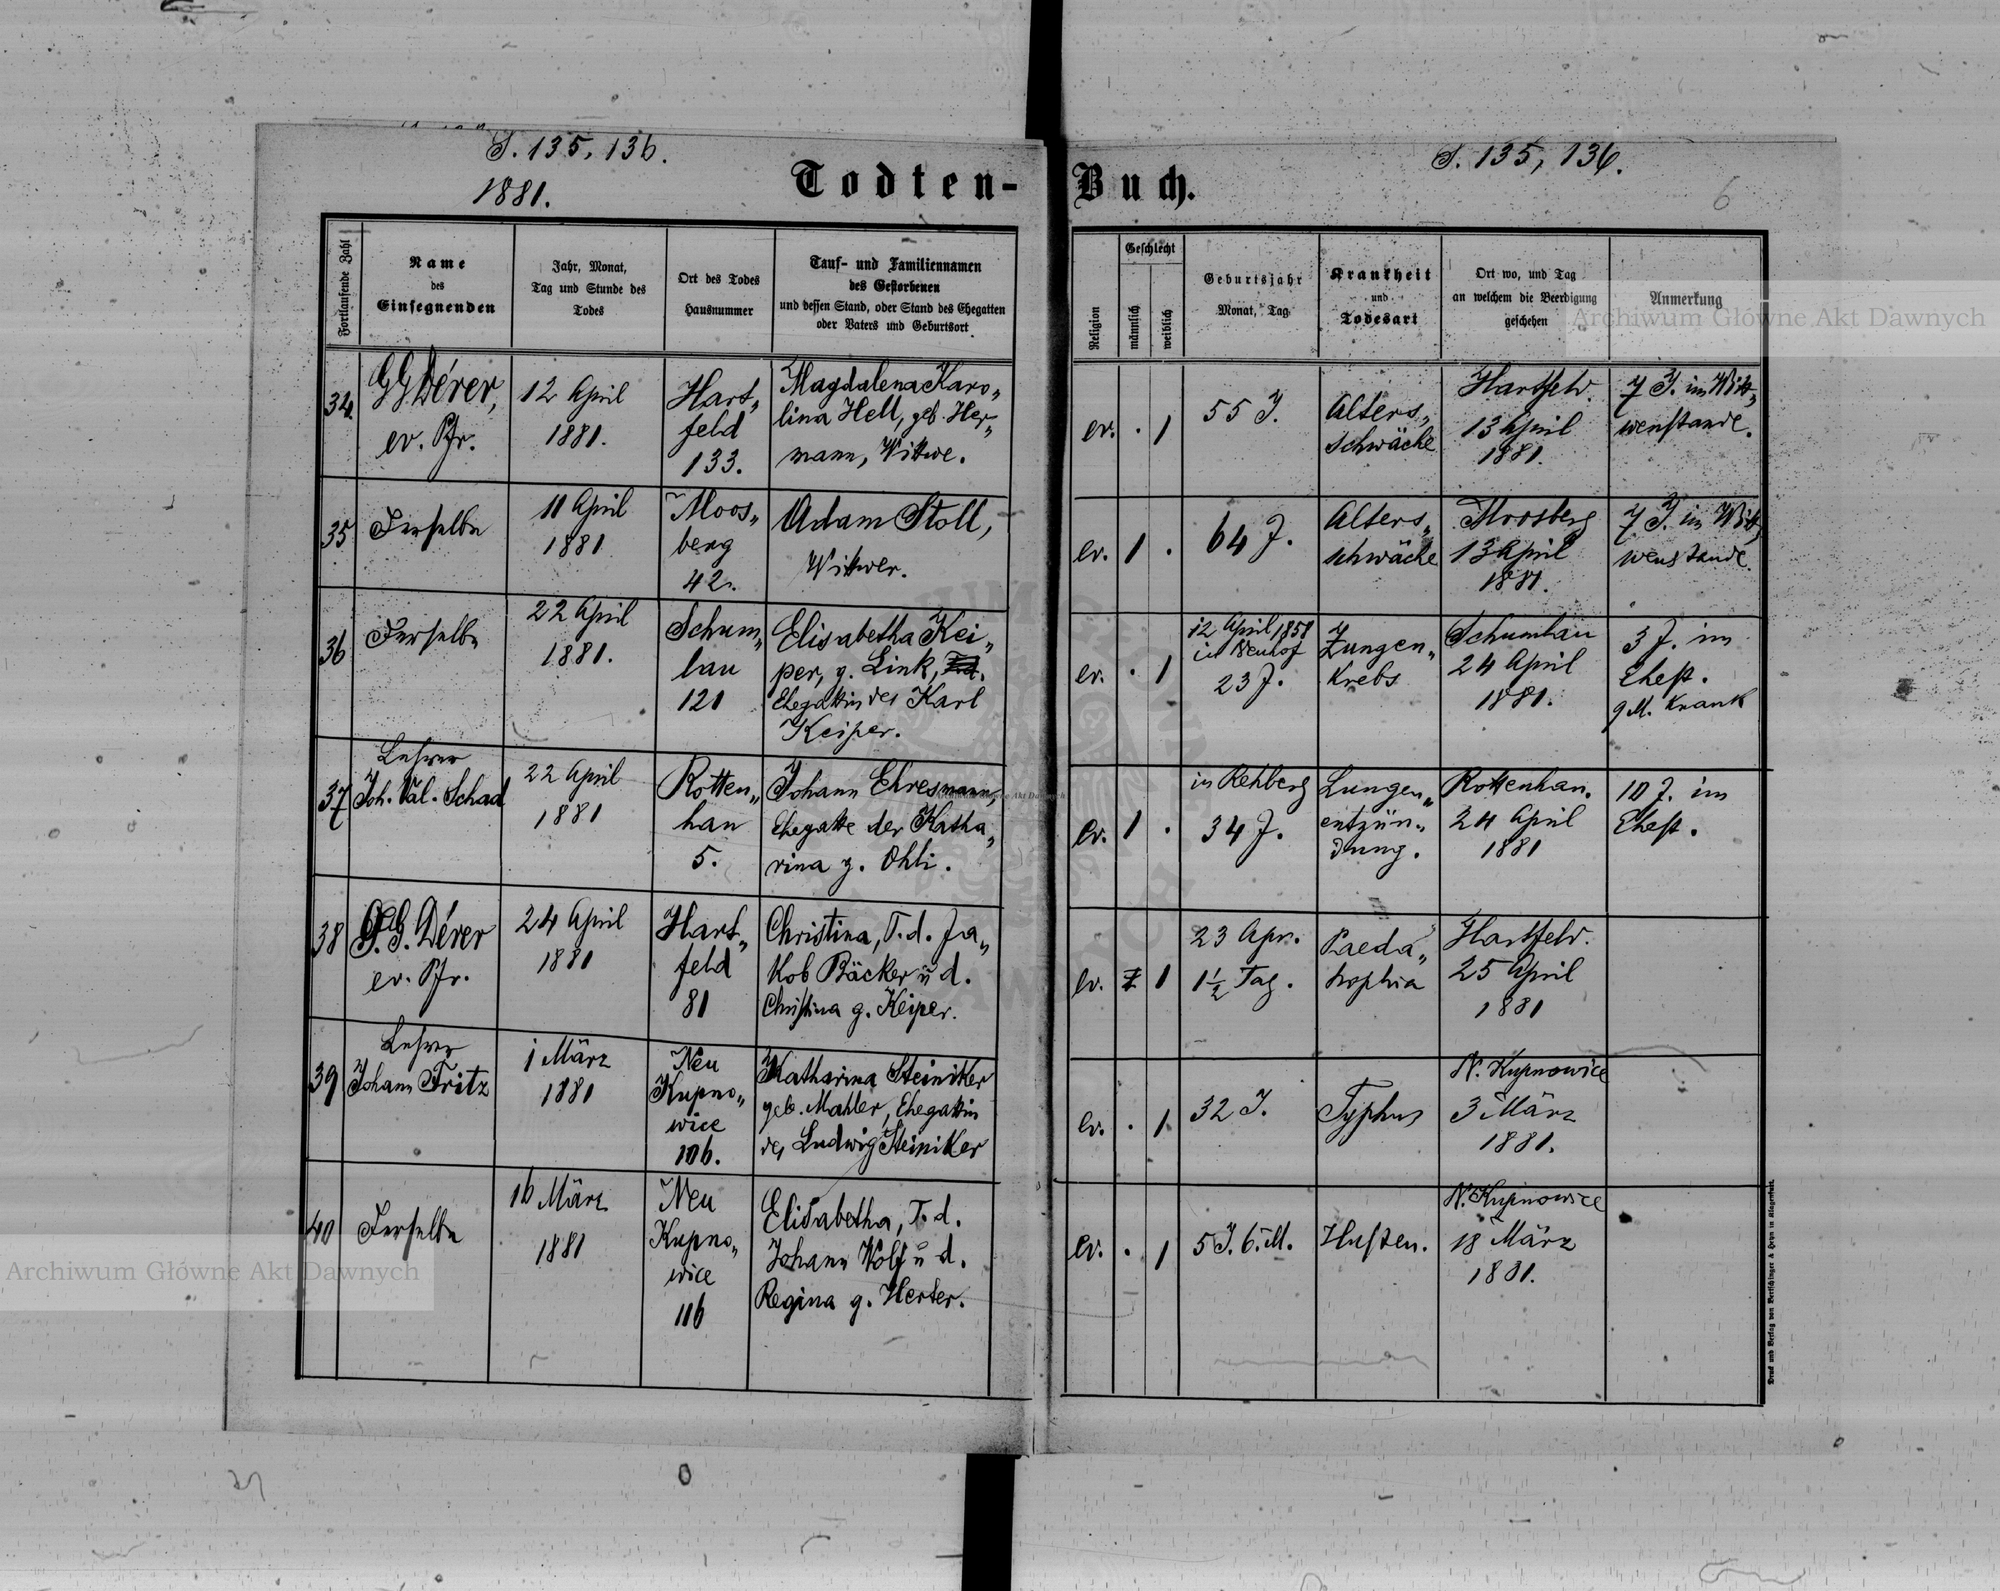 S. 135, 136.
1881.
Todten-
Fortlaufende Zahl
Name
des
Einsegnenden
Jahr, Monat,
Tag und Stunde des
Todes
Ort des Todes
Hausnummer
Tauf- und Familiennamen
des Gestorbenen
und dessen Stand, oder Stand des Ehegatten
oder Vaters und Geburtsort
34
GG Dérer,
ev. Pfr.
12 April
1881.
Hart„
feld
133.
Magdalena Karo„
lina Hell, geb. Her„
mann, Witwe.
35
Derselbe
11 April
1881
Moos„
berg
42.
Adam Stoll,
Witwer.
36
Derselbe
22 April
1881.
Schum„
lau
121
Elisabetha Kei„
per, g. Link,
Ehegattin des Karl
Keiper.
37
Lehrer
Joh. Val. Schad
22 April
1881
Rotten„
han
5.
Johann Ehresmann,
Ehegatte der Katha„
rina g. Ohli.
38
G. G. Dérer
ev. Pfr.
24 April
1881
Hart„
feld
81
Christina, T. d. Ja„
kob Bäcker u d.
Christina g. Keiper.
39
Lehrer
Johann Fritz
1 März
1881
Neu
Kupno„
wice
106.
Katharina Steiniker
geb. Mahler, Ehegattin
des Ludwig Steiniker
40
Derselbe
16 März
1881
Neu
Kupno„
wice
116
Elisabetha, T. d.
Johann Wolf u d.
Regina g. Herter.
S. 135, 136.
6
Buch.
Religion
Geschlecht
männlich
weiblich
Geburtsjahr
Monat, Tag
Krankheit
und
Todesart
Ort wo, und Tag
an welchem die Beerdigung
geschehen
Anmerkung
ev. . 1
55 J.
Alters„
schwäche
Hartfeld.
13 April
1881.
7 J. im Witt„
wenstande.
ev. 1 .
64 J.
Alters„
schwäche
Moosberg
13 April
1881.
7 J. im Witt„
wenstande.
ev. . 1
12 April 1858
in Neuhof
23 J.
Zungen„
Krebs
Schumlau
24 April
1881.
3 J. im
Ehest.
9 M. krank
ev. 1 .
in Rehberg
34 J.
Lungen„
entzün„
dung.
Rottenhan.
24 April
1881
10 J. im
Ehest.
ev. 1
23 Apr.
1½ Tag.
Paeda„
trophia
Hartfeld.
25 April
1881
ev. . 1
32 J.
Typhus
N. Kupnowice
3 März
1881.
ev. . 1
5 J. 6. M.
Husten.
N. Kupnowice
18 März
1881.
Druck und Verlag von Bertschinger & Heyn in Klagenfurt.
Archiwum Główne Akt Dawnych
Archiwum Główne Akt Dawnych